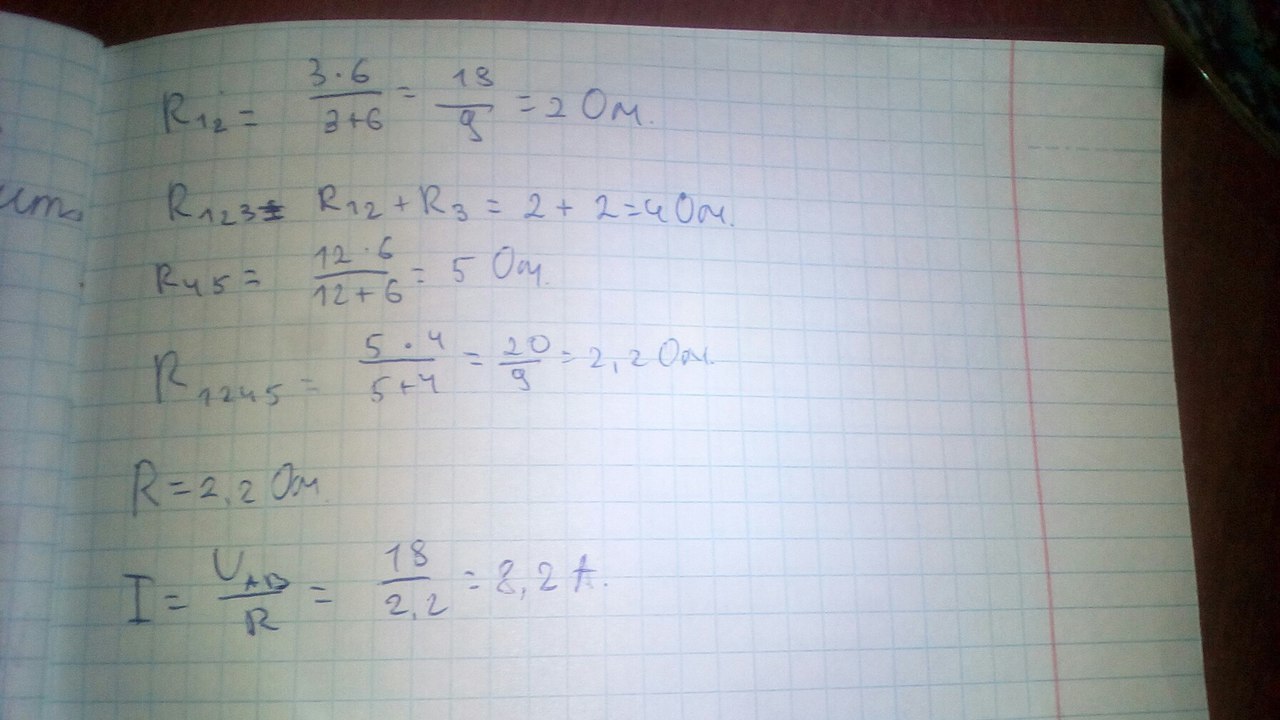 R₁₂ = (3·6)/(3+6) = 18/9 = 2 Ом.
R₁₂₃ = R₁₂ + R₃ = 2 + 2 = 4 Ом.
R₄₅ = (12·6)/(12+6) = 5 Ом.
R₁₂₄₅ = (5·4)/(5+4) = 20/9 = 2,2 Ом.
R = 2,2 Ом
I = U_AB/R = 18/2,2 = 8,2 А.